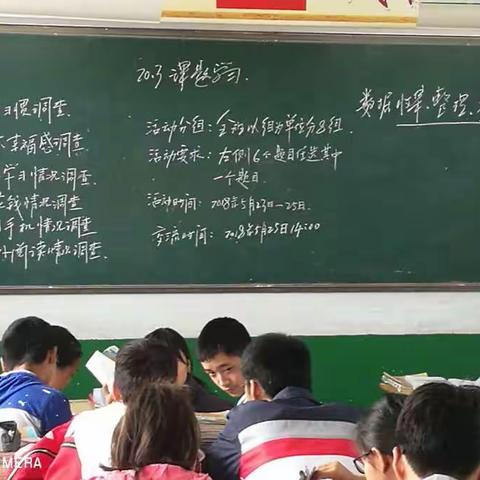 20.3 课题学习.
数据收集.整理.
习惯调查.
幸福感调查
学习情况调查.
花钱情况调查
手机情况调查
外阅读情况调查.
活动分组: 全班以组为单位分8组.
活动要求: 右侧6个题目任选其中
一个题目.
活动时间: 2018年5月23日—25日.
交流时间: 2018年5月25日14:00
MERA